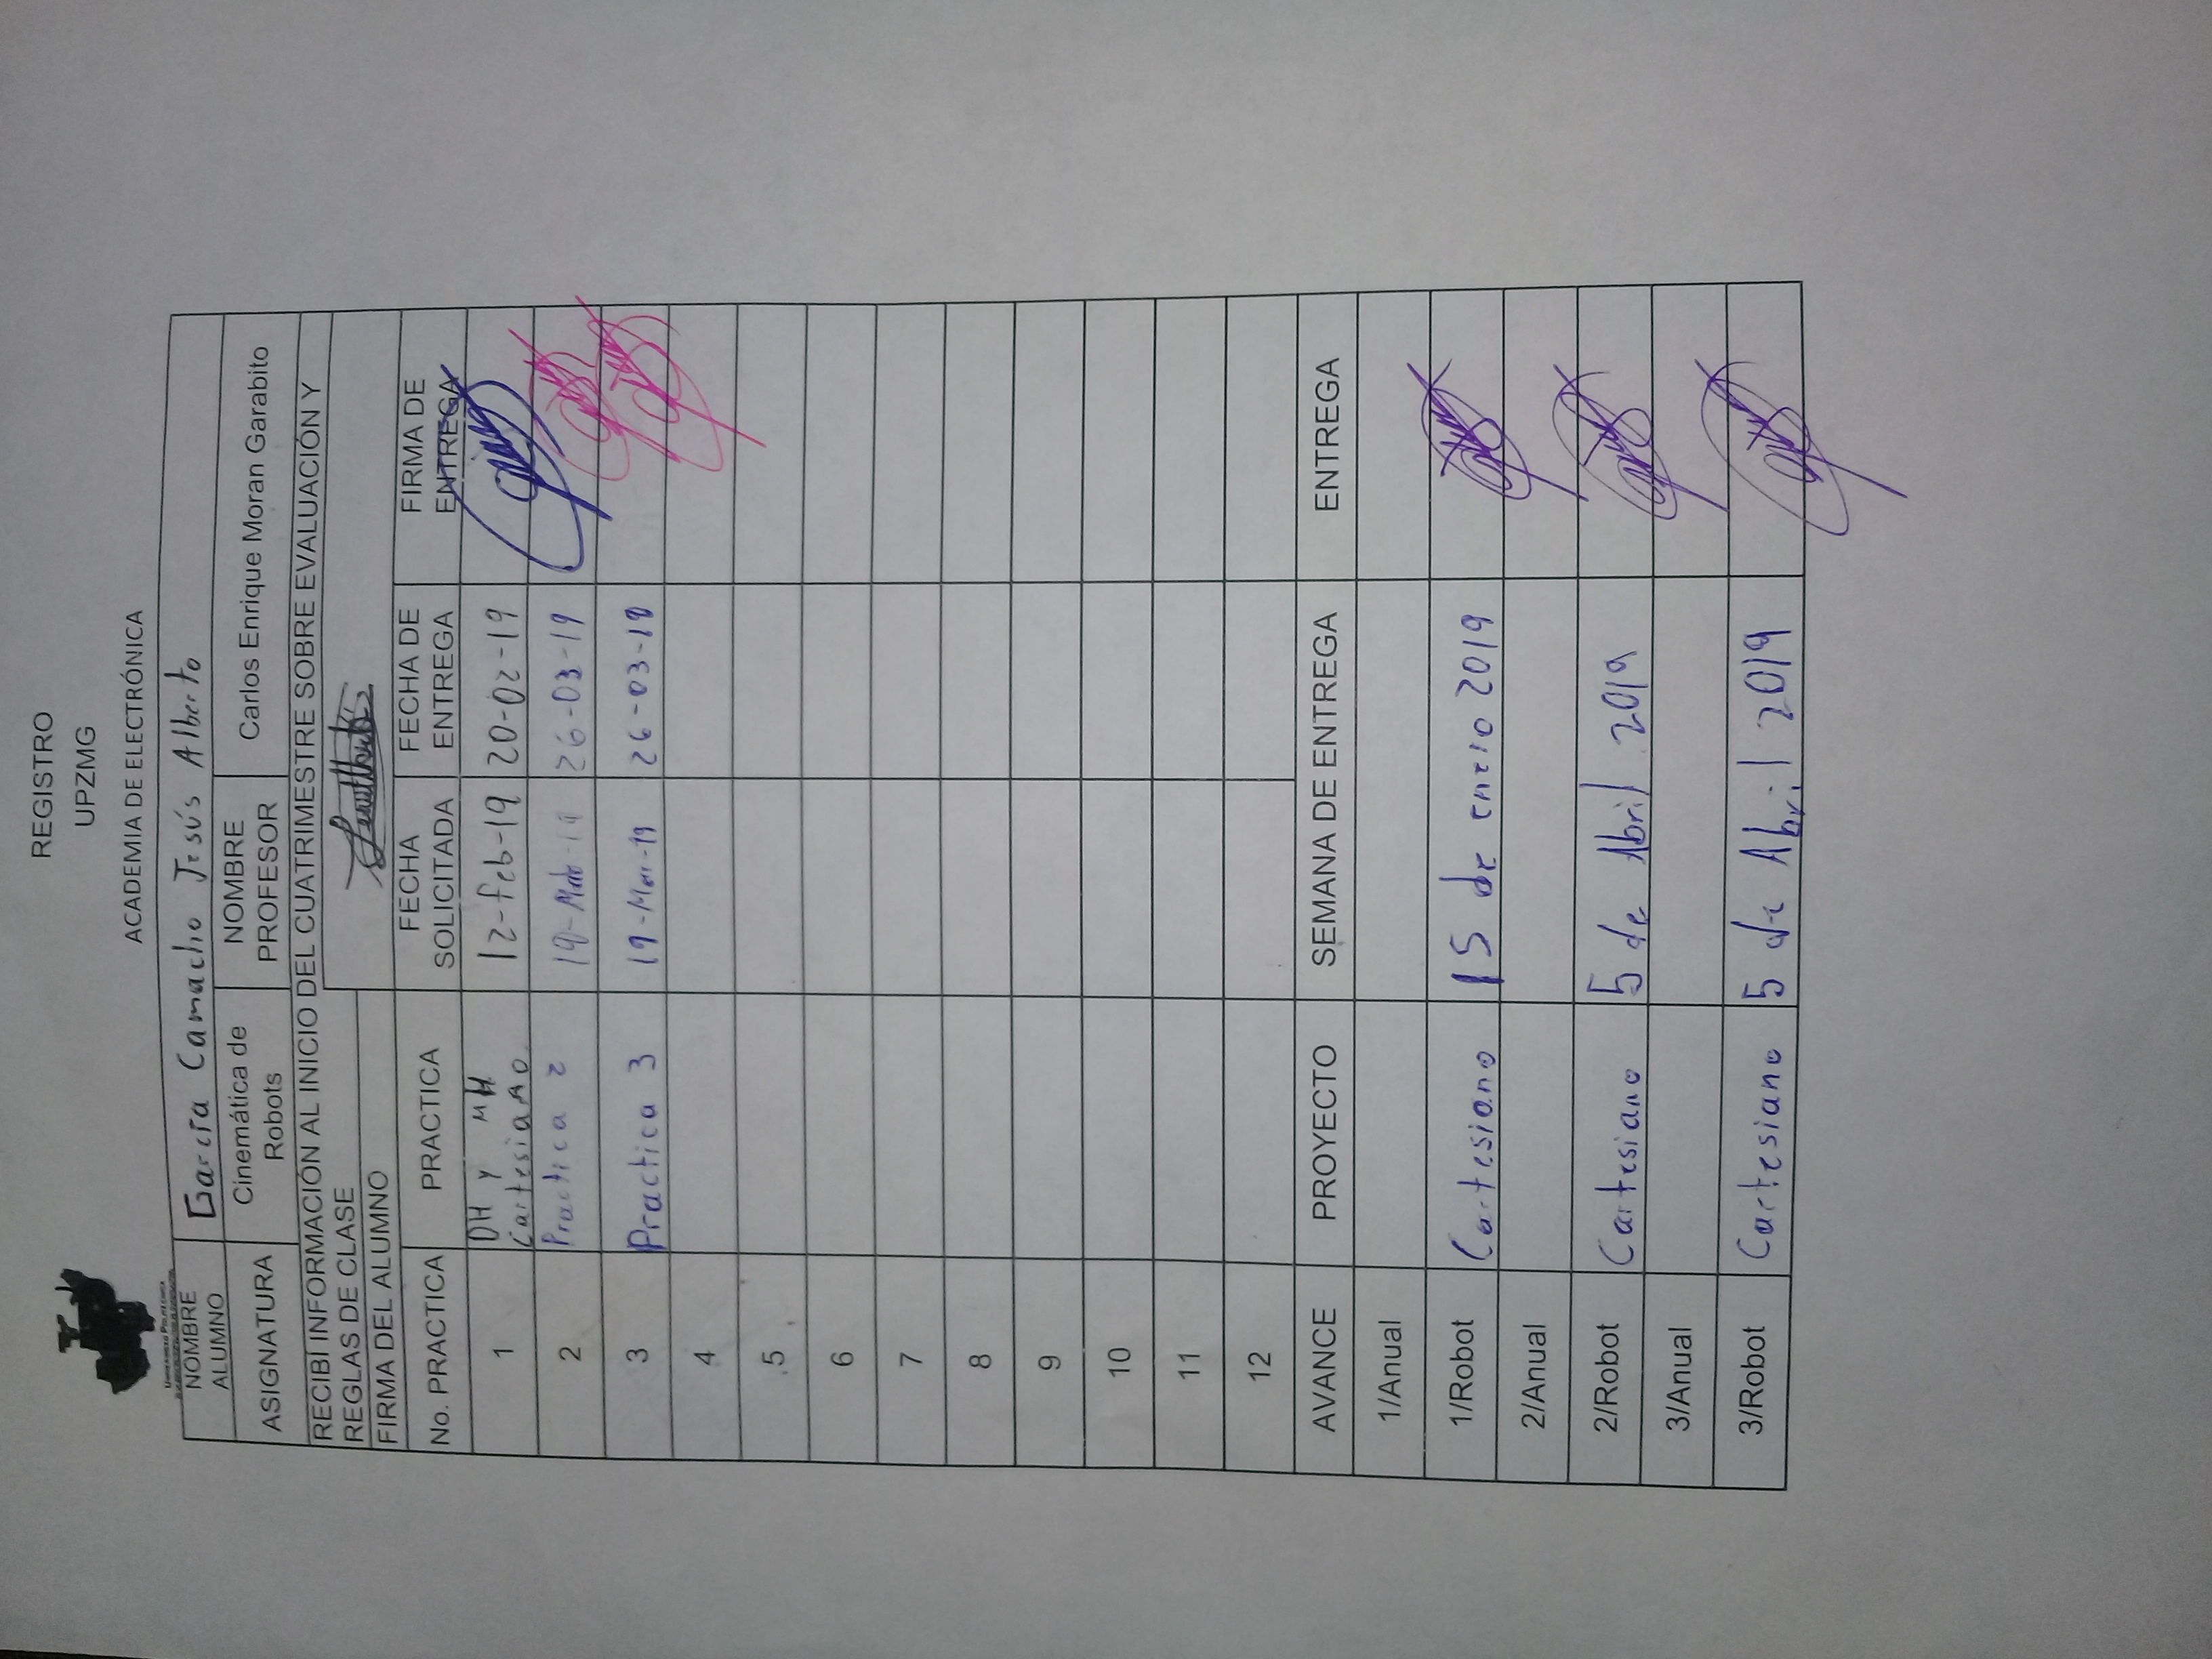 REGISTRO
UPZMG
ACADEMIA DE ELECTRÓNICA
UNIVERSIDAD POLITÉCNICA
NOMBRE ALUMNO García Camacho Jesús Alberto
ASIGNATURA Cinemática de Robots NOMBRE PROFESOR Carlos Enrique Moran Garabito
RECIBÍ INFORMACIÓN AL INICIO DEL CUATRIMESTRE SOBRE EVALUACIÓN Y
REGLAS DE CLASE
FIRMA DEL ALUMNO
No. PRACTICA PRACTICA FECHA SOLICITADA FECHA DE ENTREGA FIRMA DE ENTREGA
1 DH y MH Cartesiano 12-feb-19 20-02-19
2 Practica 2 26-03-19
3 Practica 3 19-Mar-19 26-03-19
4
5
6
7
8
9
10
11
12
AVANCE PROYECTO SEMANA DE ENTREGA ENTREGA
1/Anual
1/Robot Cartesiano 15 de enero 2019
2/Anual
2/Robot Cartesiano 5 de Abril 2019
3/Anual
3/Robot Cartesiano 5 de Abril 2019